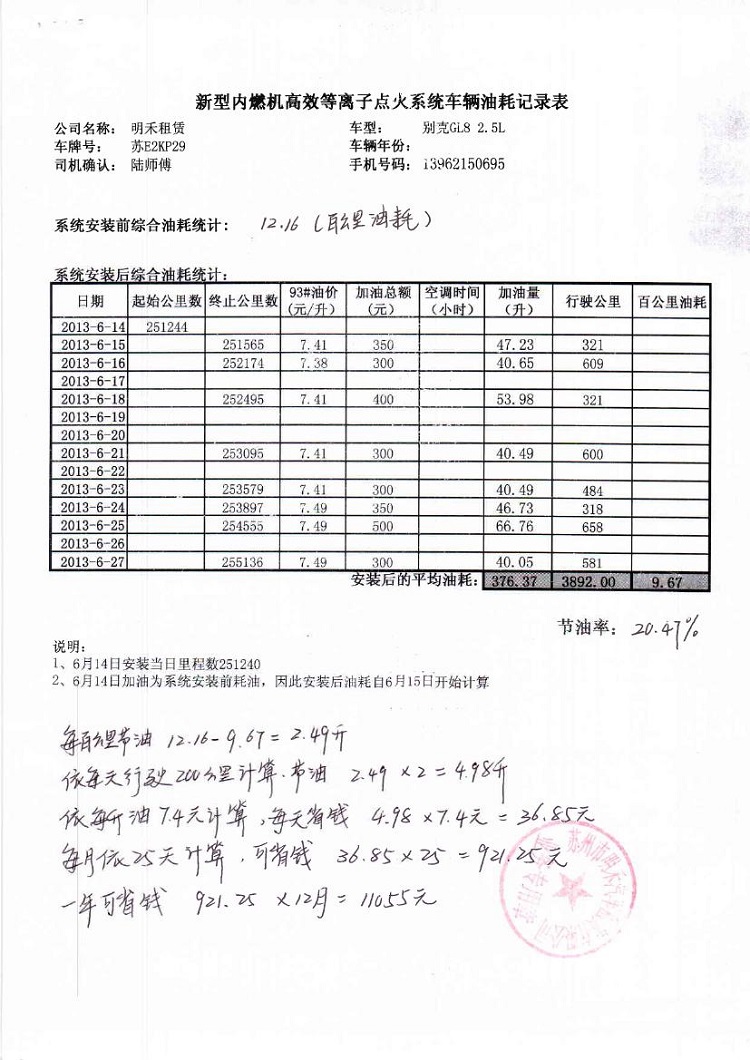 新型内燃机高效等离子点火系统车辆油耗记录表
公司名称： 明禾租赁 车型： 别克GL8 2.5L
车牌号： 苏E2KP29 车辆年份：
司机确认： 陆师傅 手机号码： 13962150695
系统安装前综合油耗统计： 12.16 (百公里油耗)
系统安装后综合油耗统计：
日期 起始公里数 终止公里数 93#油价（元/升） 加油总额（元） 空调时间（小时） 加油量（升） 行驶公里 百公里油耗
2013-6-14 251244
2013-6-15 251565 7.41 350 47.23 321
2013-6-16 252174 7.38 300 40.65 609
2013-6-17
2013-6-18 252495 7.41 400 53.98 321
2013-6-19
2013-6-20
2013-6-21 253095 7.41 300 40.49 600
2013-6-22
2013-6-23 253579 7.41 300 40.49 484
2013-6-24 253897 7.49 350 46.73 318
2013-6-25 254555 7.49 500 66.76 658
2013-6-26
2013-6-27 255136 7.49 300 40.05 581
安装后的平均油耗： 376.37 3892.00 9.67
节油率： 20.47%
说明：
1、6月14日安装当日里程数251240
2、6月14日加油为系统安装前耗油，因此安装后油耗自6月15日开始计算
每百公里节油 12.16-9.67=2.49升
依每天行驶200公里计算.节油 2.49×2=4.98升
依每升油7.4元计算，每天省钱 4.98×7.4元=36.85元
每月依25天计算，可省钱 36.85×25=921.25元
一年可省钱 921.25×12月=11055元
苏州市明禾汽车
专用章